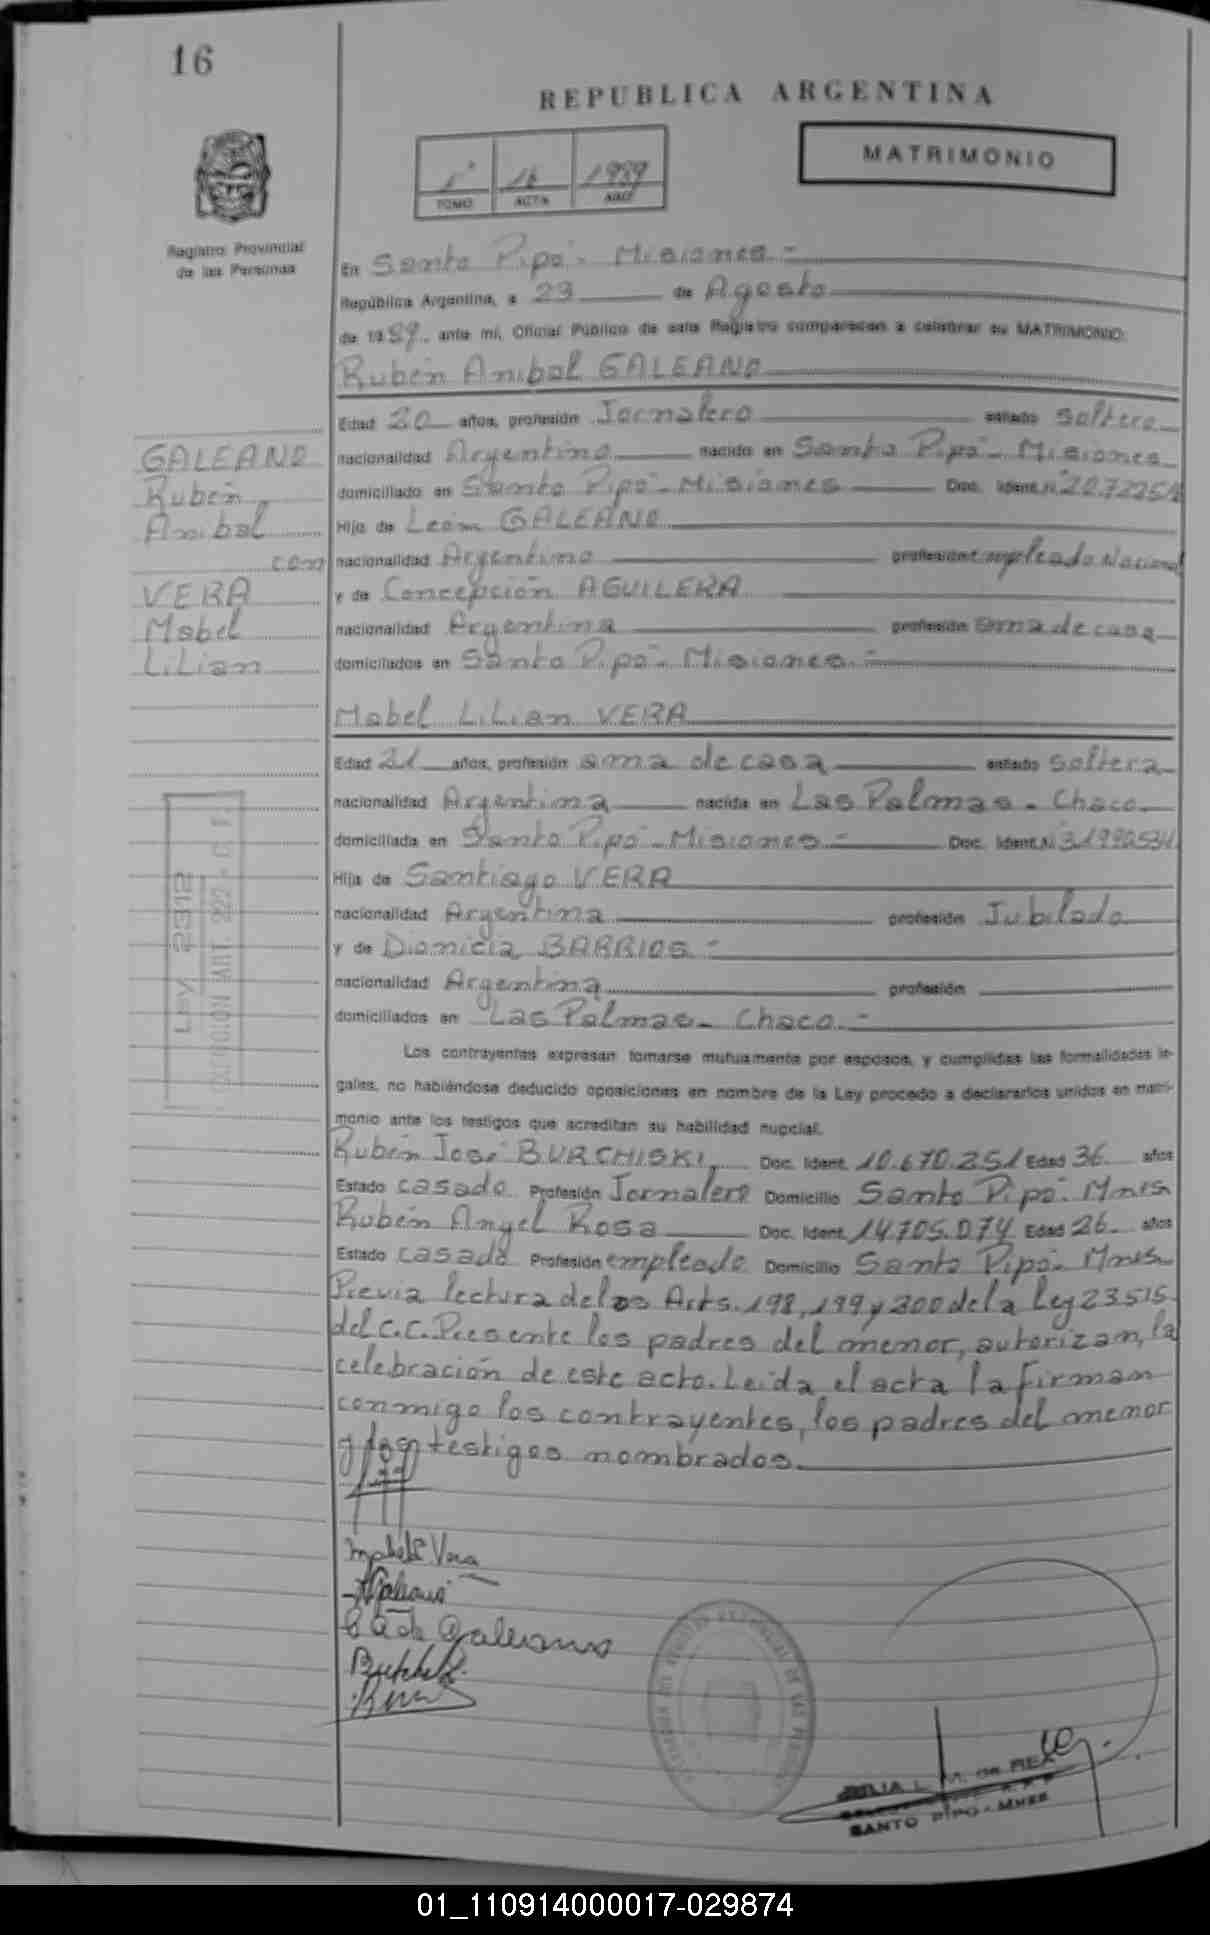 16
REPUBLICA ARGENTINA
1° 16 1989
TOMO ACTA AÑO
MATRIMONIO
Registro Provincial
de las Personas
En Santo Pipó - Misiones.-
República Argentina, a 23 de Agosto
de 1989 ante mí, Oficial Público de este Registro comparecen a celebrar su MATRIMONIO:
Rubén Anibal GALEANO
Edad 20 años, profesión Jornalero estado soltero
GALEANO
Rubén
Anibal
con
VERA
Mabel
Lilian
nacionalidad Argentino nacido en Santo Pipó - Misiones
domiciliado en Santo Pipó - Misiones Doc. Ident. N
Hijo de León GALEANO
nacionalidad Argentino profesión empleado Nacional
y de Concepción AGUILERA
nacionalidad Argentina profesión ama de casa
domiciliados en Santo Pipó - Misiones.-
Mabel Lilian VERA
Edad 21 años, profesión ama de casa estado soltera
nacionalidad Argentina nacida en Las Palmas - Chaco
domiciliada en Santo Pipó - Misiones - Doc. Ident. N
Hija de Santiago VERA
nacionalidad Argentina profesión Jubilado
y de Dionicia BARRIOS -
nacionalidad Argentina profesión
domiciliados en Las Palmas - Chaco.-
LEY 2312
Los contrayentes expresan tomarse mutuamente por esposos, y cumplidas las formalidades le-
gales, no habiéndose deducido oposiciones en nombre de la Ley procedo a declararlos unidos en matri-
monio ante los testigos que acreditan su habilidad nupcial.
Rubén José BURCHISKI, Doc. Ident. 10.670.251 Edad 36 años
Estado casado Profesión Jornalero Domicilio Santo Pipó - Mnes
Rubén Angel Rosa Doc. Ident. 14.705.074 Edad 26 años
Estado casado Profesión empleado Domicilio Santo Pipó - Mnes
Previa lectura de los Arts. 198, 199 y 200 de la Ley 23515
del C.C. Presente los padres del menor, autorizan, la
celebración de este acto. Leída el acta la firman
conmigo los contrayentes, los padres del menor
y los testigos nombrados.
Vera
Galeano
SANTO PIPO - MNES
01_110914000017-029874